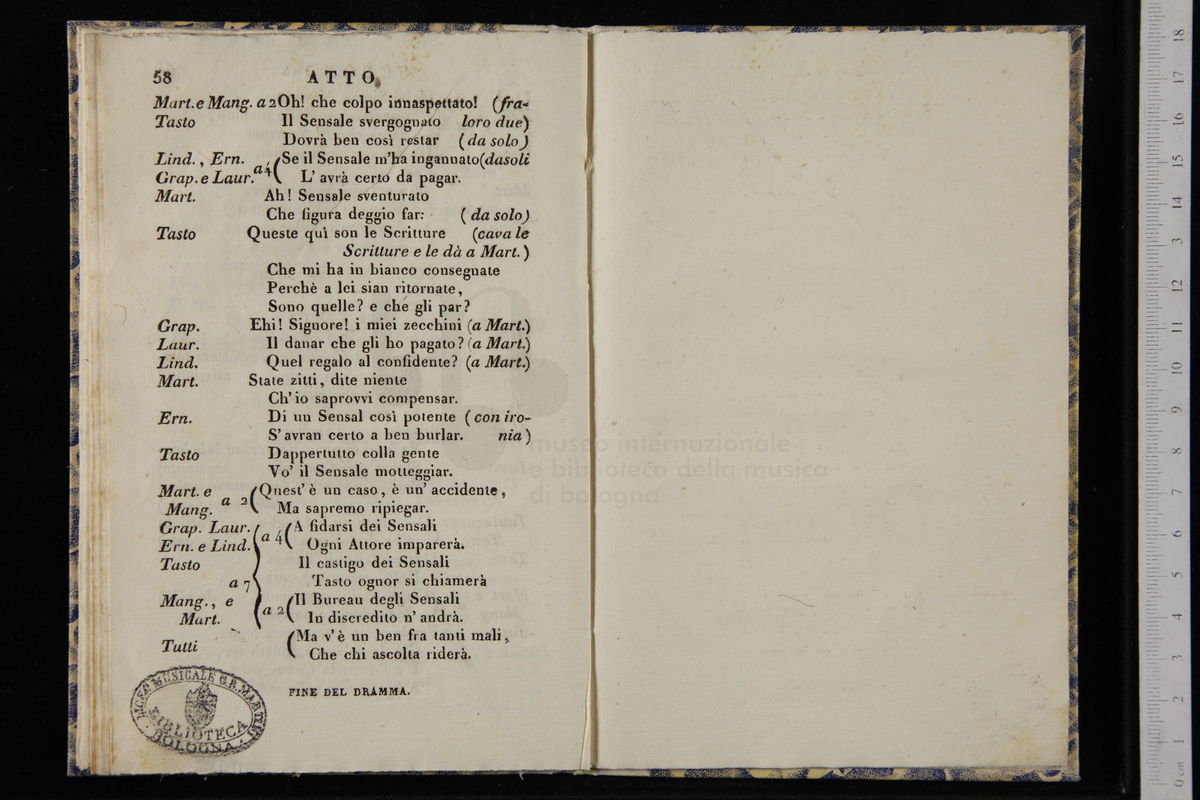 58 ATTO
Mart. e Mang. a 2 Oh! che colpo innaspettato! (fra-
Tasto Il Sensale svergognato loro due)
Dovrà ben così restar (da solo)
Lind., Ern. Se il Sensale m'ha ingannato (da soli
Grap. e Laur. a 4 ( L'avrà certo da pagar.
Mart. Ah! Sensale sventurato
Che figura deggio far: (da solo)
Tasto Queste quì son le Scritture (cava le
Scritture e le dà a Mart.)
Che mi ha in bianco consegnate
Perchè a lei sian ritornate,
Sono quelle? e ché gli par?
Grap. Ehi! Signore! i miei zecchini (a Mart.)
Laur. Il danar che gli ho pagato? (a Mart.)
Lind. Quel regalo al confidente? (a Mart.)
Mart. State zitti, dite niente
Ch'io saprovvi compensar.
Ern. Di un Sensal così potente (con iro-
S'avran certo a ben burlar. nia)
Tasto Dappertutto colla gente
Vo' il Sensale motteggiar.
Mart. e (Quest' è un caso, è un' accidente,
Mang. a 2 ( Ma sapremo ripiegar.
Grap. Laur. (A fidarsi dei Sensali
Ern. e Lind. a 4 ( Ogni Attore imparerà.
Tasto Il castigo dei Sensali
a 7 Tasto ognor si chiamerà
Mang., e (Il Bureau degli Sensali
Mart. a 2 ( In discredito n' andrà.
Tutti (Ma v'è un ben fra tanti mali,
( Che chi ascolta riderà.
FINE DEL DRAMMA.
LICEO MUSICALE G.B. MARTINI
BIBLIOTECA
BOLOGNA
museo internazionale
e biblioteca della musica
di bologna
0 cm 1 2 3 4 5 6 7 8 9 10 11 12 13 14 15 16 17 18